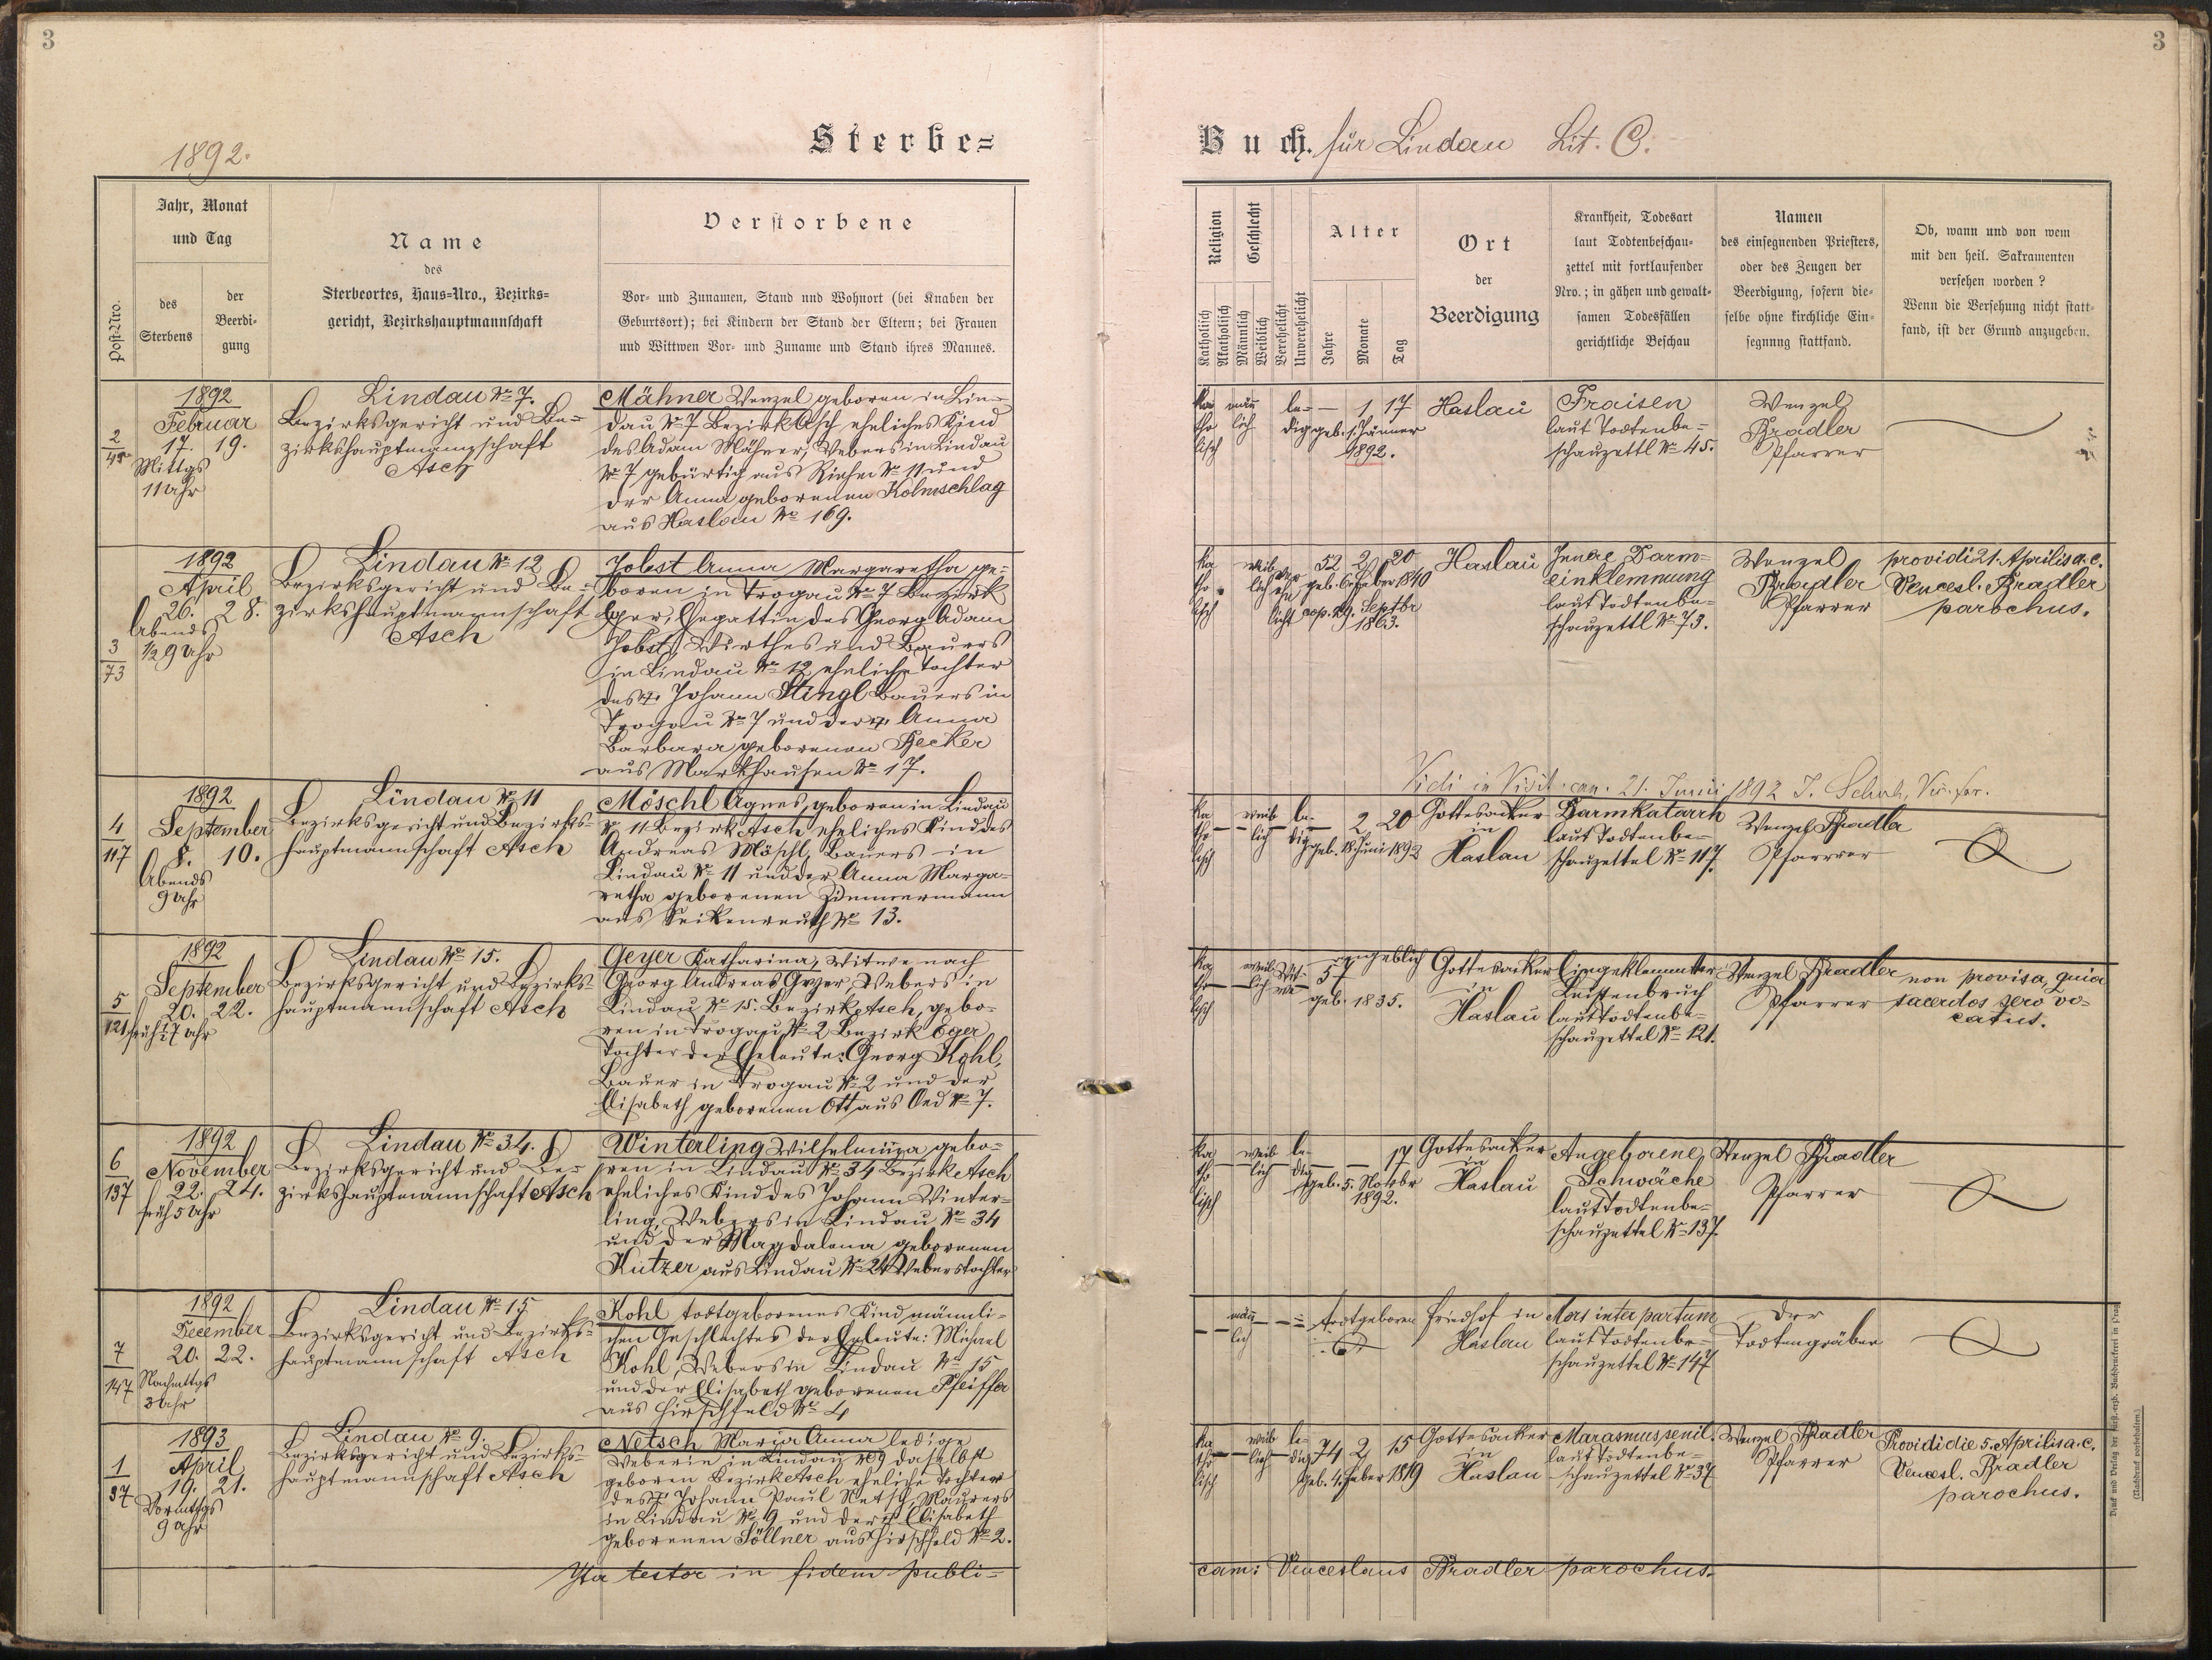 3
3
1892.
Sterbe=
Buch. für Lindau Lit. C.
Post-Nro.
Jahr, Monat
und Tag
des
Sterbens
der
Beerdi-
gung
Name
des
Sterbeortes, Haus=Nro., Bezirks=
gericht, Bezirkshauptmannschaft
Verstorbene
Vor- und Zunamen, Stand und Wohnort (bei Knaben der
Geburtsort); bei Kindern der Stand der Eltern; bei Frauen
und Wittwen Vor- und Zuname und Stand ihres Mannes.
Religion
Katholisch
Akatholisch
Geschlecht
Männlich
Weiblich
Verehelicht
Unverehelicht
Alter
Jahre
Monate
Tag
Ort
der
Beerdigung
Krankheit, Todesart
laut Todtenbeschau-
zettel mit fortlaufender
Nro.; in gähen und gewalt-
samen Todesfällen
gerichtliche Beschau
Namen
des einsegnenden Priesters,
oder des Zeugen der
Beerdigung, sofern die-
selbe ohne kirchliche Ein-
segnung stattfand.
Ob, wann und von wem
mit den heil. Sakramenten
versehen worden?
Wenn die Versehung nicht statt-
fand, ist der Grund anzugeben.
2
45
1892
Februar
17. 19.
Mittgs
11 Uhr
Lindau No 7.
Bezirksgericht und Be-
zirkshauptmannschaft
Asch
Mähner Wenzel geboren in Lin-
dau No 7 Bezirk Asch eheliches Kind
des Adam Mähner, Webers in Lindau
No 7 gebürtig aus No 11 und
der Anna geborenen Kolmschlag
aus Haslau No 169.
ka
tho
lisch
män
lich
le-
dig
— 1 17
geb. 1. Jänner
1892.
Haslau
Fraisen
laut Todtenbe-
schauzettl No 45.
Wenzel
Bradler
Pfarrer
3
73
1892
April
26. 28.
Abends
1/2 9 Uhr
Lindau No 12
Bezirksgericht und Be-
zirkshauptmannschaft
Asch
Jobst Anna Margaretha ge-
boren in Trogau No 7 Bezirk
Eger, Ehegattin des Georg Adam
Jobst, Wirthes und Bauers
in Lindau No 12, eheliche Tochter
des † Johann Stingl Bauers in
Trogau No 7 und der † Anna
Barbara geborenen Becker
aus Markhausen No 17.
ka
tho
lisch
weib
lich
ver
ehe
licht
52 2 20
geb. 6. Feber 1840
cop. 29. Septbr
1863.
Haslau
Innere Darm-
einklemmung
laut Todtenbe-
schauzettl No 73.
Wenzel
Bradler
Pfarrer
providi 21. Aprilis a. c.
Vencesl. Bradler
parochus.
Vidi in Visit. can. 21. Junii 1892 J.
4
117
1892
September
8. 10.
Abends
9 Uhr
Lindau No 11
Bezirksgericht und Bezirks-
hauptmannschaft Asch
Möschl Agnes, geboren in Lindau
No 11 Bezirk Asch eheliches Kind des
Andreas Möschl, Bauers in
Lindau No 11 und der Anna Marga-
retha geborenen Zimmermann
aus Seikenreuth No 13.
ka
tho
lisch
weib
lich
le-
dig
— 2 20
geb. 18. Juni 1892
Gottesacker
in
Haslau
Darmkatarrh
laut Todtenbe-
schauzettel No 117.
Wenzel Bradler
Pfarrer
5
121
1892
September
20. 22.
früh 1/2 7 Uhr
Lindau No 15.
Bezirksgericht und Bezirks-
hauptmannschaft Asch
Geyer Katharina, Witwe nach
Georg Andreas Geyer, Webers in
Lindau No 15. Bezirk Asch, gebo-
ren in Trogau No 2 Bezirk Eger
Tochter der Eheleute: Georg Kohl,
Bauer in Trogau No 2 und der
Elisabeth geborenen Ott aus Oed No 7.
ka
tho
lisch
weib
lich
Wit-
we
57 angeblich
geb. 1835.
Gottesacker
in
Haslau
Eingeklemmter
Leistenbruch
laut Todtenbe-
schauzettel No 121.
Wenzel Bradler
Pfarrer
non provisa, quia
sacerdos sero vo-
catus.
6
137
1892
November
22. 24.
früh 5 Uhr
Lindau No 34.
Bezirksgericht und Be-
zirkshauptmannschaft Asch
Winterling Wilhelmina gebo-
ren in Lindau No 34 Bezirk Asch
eheliches Kind des Johann Winter-
ling, Webers in Lindau No 34
und der Magdalena geborenen
Kutzer aus Lindau No 24 Weberstochter
ka
tho
lisch
weib
lich
le-
dig
— — 17
geb. 5. Novbr
1892.
Gottesacker
in
Haslau
Angeborene
Schwäche
laut Todtenbe-
schauzettel No 137.
Wenzel Bradler
Pfarrer
7
147
1892
December
20. 22.
Nachmttgs
3 Uhr
Lindau No 15
Bezirksgericht und Bezirks-
hauptmannschaft Asch
Kohl todtgeborenes Kind männli-
chen Geschlechtes der Eheleute: Michael
Kohl, Webers in Lindau No 15
und der Elisabeth geborenen Pfeiffer
aus Hirschfeld No 4
män
lich
todtgeboren
Friedhof in
Haslau
Mors inter partum
laut Todtenbe-
schauzettel No 147
Der
Todtengräber
1
37
1893
April
19. 21.
Vormttgs
9 Uhr
Lindau No 9.
Bezirksgericht und Bezirks-
hauptmannschaft Asch
Netsch Maria Anna ledige
Weberin in Lindau No 9 daselbst
geboren Bezirk Asch eheliche Tochter
des † Johann Paul Netsch, Maurers
in Lindau No 9 und der † Elisabeth
geborenen Söllner aus Hirschfeld No 2.
ka
tho
lisch
weib
lich
le-
dig
74 2 15
geb. 4. Feber 1819
Gottesacker
in
Haslau
Marasmus senil.
laut Todtenbe-
schauzettel No 37
Wenzel Bradler
Pfarrer
Providi die 5. Aprilis a. c.
Vencesl. Bradler
parochus.
Ita testor in fidem publi-
cam: Venceslaus Bradler parochus.
Druck und Verlag der fürst.-erzb. Buchdruckerei in Prag.
(Nachdruck vorbehalten.)